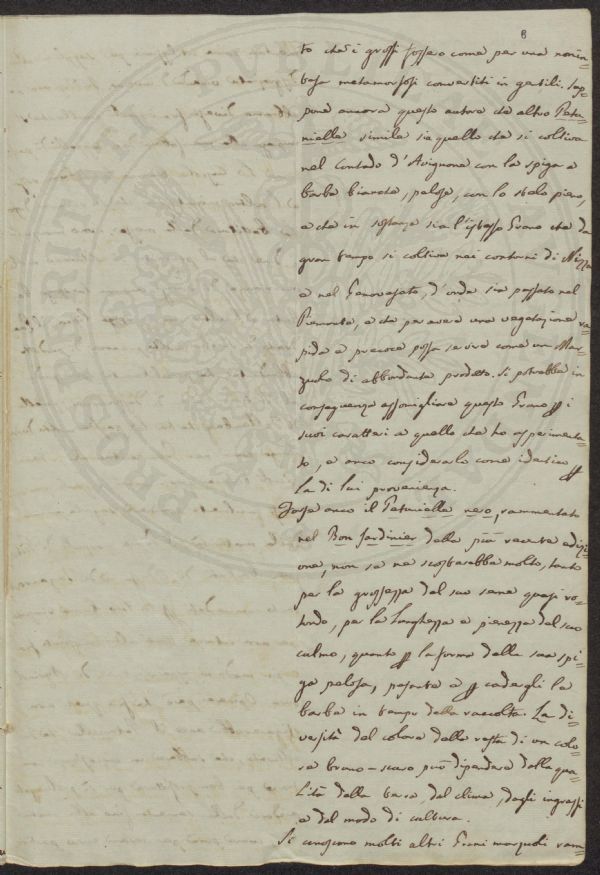 8
to che i grossi fossero come per una nonin=
tesa metamorfosi convertiti in gentili. Sup=
pone ancora questo autore che altro Petu=
nielle simile sia quello che si coltiva
nel Contado d'Avignone con la spiga e
barba bianche, pelose, con lo stelo pieno,
e che in sostanza sia l'istesso Grano che da
gran tempo si coltiva nei contorni di Nizza
e nel Genovesato, d'onde sia passato nel
Piemonte, e che per avere una vegetazione ra=
pida e precoce possa servire come un Mar=
zuolo di abbondante prodotto. Si potrebbe in
conseguenza assomigliare questo Grano p i
suoi caratteri a quello che ho esperimenta=
to, e anco considerarlo come identico p
la di lui provenienza.
Forse anco il Petunielle nero, rammentato
nel Bon Jardinier della più recente edizi=
one, non se ne scosterebbe molto, tanto
per la grossezza del suo seme quasi ro=
tondo, per la lunghezza e pienezza del suo
culmo, quanto p la forma della sua spi=
ga pelosa, pesante e p cadergli la
barba in tempo della raccolta. La di=
versità del colore delle reste di un colo=
re bruno-scuro può dipendere dalla qua=
lità della terra, del clima, degli ingrassi
e del modo di cultura.
Si conoscono molti altri Grani marzuoli ram=